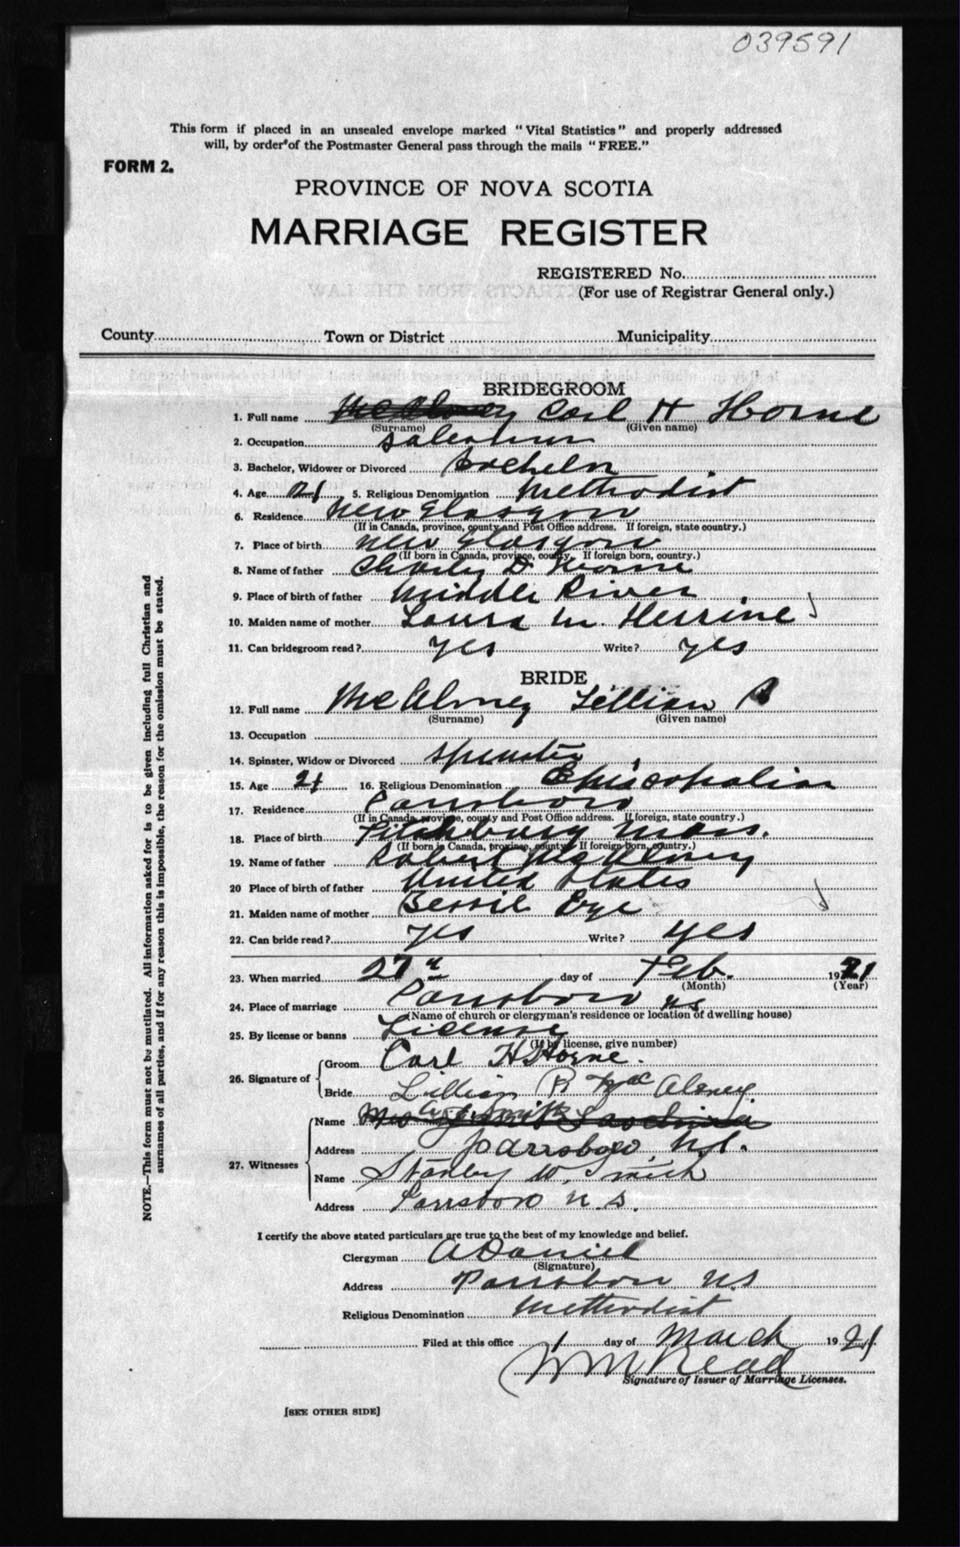 039591
This form if placed in an unsealed envelope marked "Vital Statistics" and properly addressed
will, by order of the Postmaster General pass through the mails "FREE."
FORM 2.
PROVINCE OF NOVA SCOTIA
MARRIAGE REGISTER
REGISTERED No.
(For use of Registrar General only.)
County Town or District Municipality
BRIDEGROOM
1. Full name Carl H Horne
(Surname) (Given name)
2. Occupation Salesman
3. Bachelor, Widower or Divorced Bachelor
4. Age 21 5. Religious Denomination Methodist
6. Residence New Glasgow
(If in Canada, province, county and Post Office address. If foreign, state country.)
7. Place of birth New Glasgow
(If born in Canada, province, county. If foreign born, country.)
8. Name of father Charley D Horne
9. Place of birth of father Middle River
10. Maiden name of mother Laura M. Herrine
11. Can bridegroom read? yes Write? yes
BRIDE
12. Full name McAloney Lillian B
(Surname) (Given name)
13. Occupation
14. Spinster, Widow or Divorced Spinster
15. Age 21 16. Religious Denomination Episcopalian
17. Residence Parrsboro
(If in Canada, province, county and Post Office address. If foreign, state country.)
18. Place of birth Fitchburg Mass.
(If born in Canada, province, county. If foreign born, country.)
19. Name of father Robert McAloney
20 Place of birth of father United States
21. Maiden name of mother Bessie Dye
22. Can bride read? yes Write? yes
23. When married 27th day of Feb. 1921
(Month) (Year)
24. Place of marriage Parrsboro NS
(Name of church or clergyman's residence or location of dwelling house)
25. By license or banns License
(If by license, give number)
26. Signature of Groom Carl H Horne.
Bride Lillian B MacAloney.
27. Witnesses Name Mrs
Address Parrsboro N.S.
Name Stanley W. Smith
Address Parrsboro N.S.
I certify the above stated particulars are true to the best of my knowledge and belief.
Clergyman A Daniel
(Signature)
Address Parrsboro NS
Religious Denomination Methodist
Filed at this office 1 day of March 1921
Signature of Issuer of Marriage Licenses.
[SEE OTHER SIDE]
NOTE.—This form must not be mutilated. All information asked for is to be given including full Christian and
surnames of all parties, and if for any reason this is impossible, the reason for the omission must be stated.